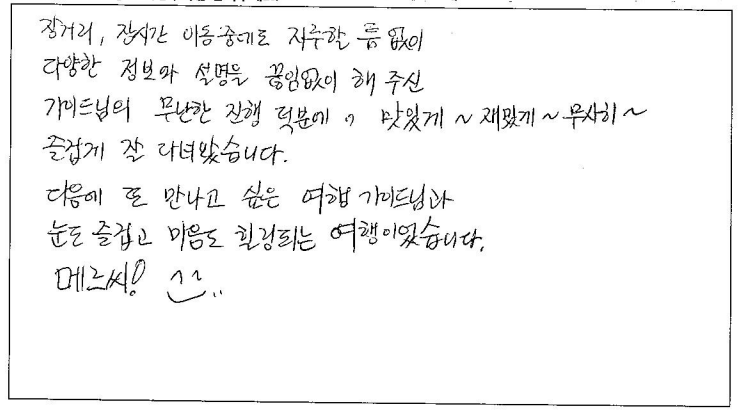 장거리, 장시간 이동중에도 지루할 틈 없이
다양한 정보와 설명을 끊임없이 해 주신
가이드님의 무난한 진행 덕분에, 맛있게~재밌게~무사히~
즐겁게 잘 다녀왔습니다.
다음에 또 만나고 싶은 여행 가이드님과
눈도 즐겁고 마음도 힐링되는 여행이었습니다.
메르씨! ^^